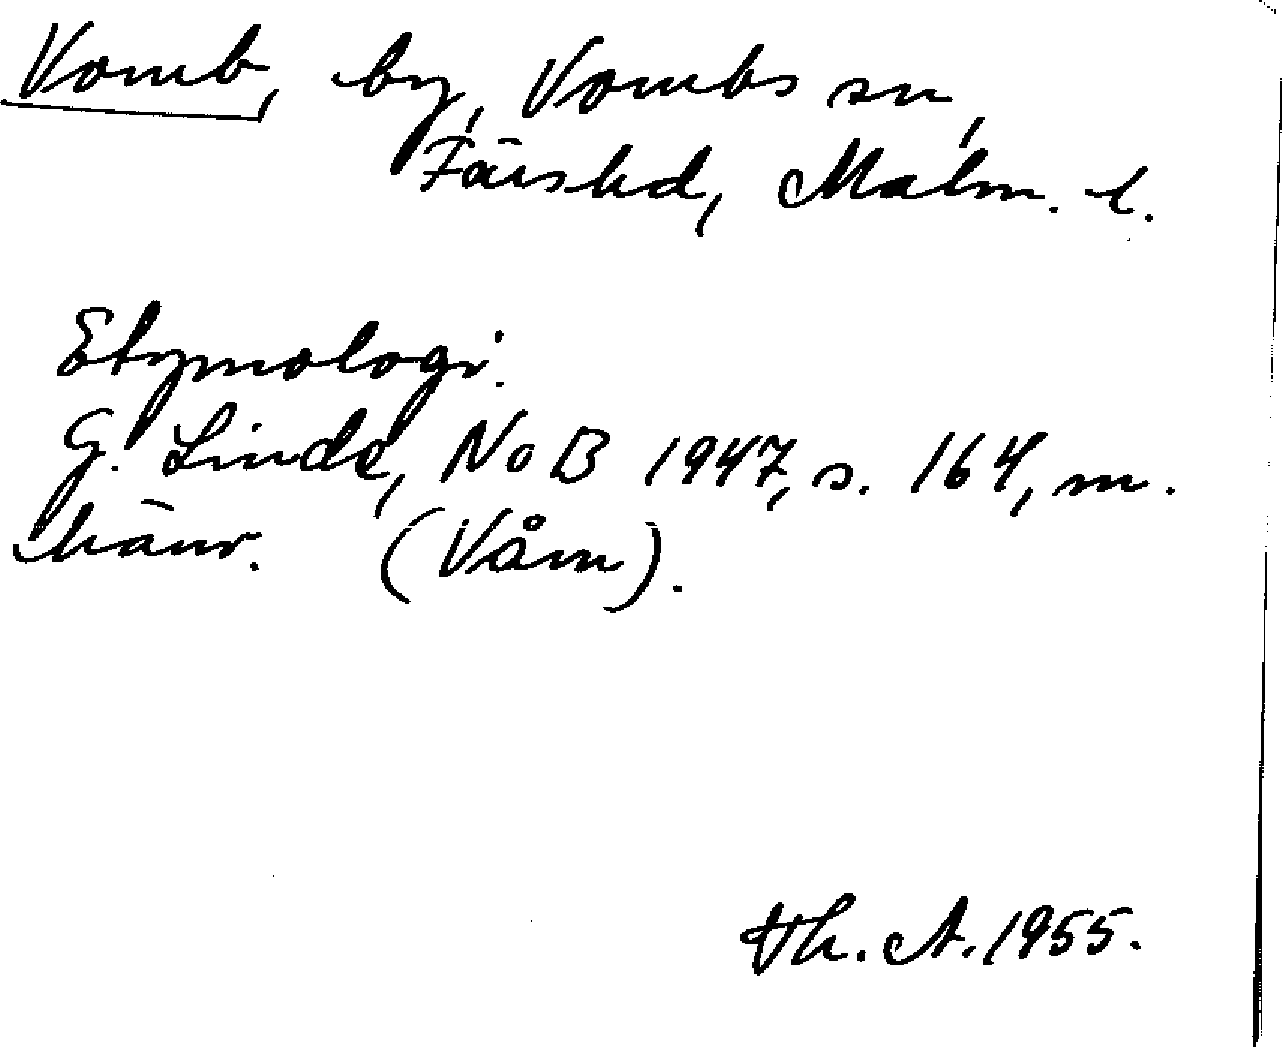 Vomb, by, Vombs sn,
Färshd, Malm. l.
Etymologi.
G. Linde, NoB 1947, s. 164, m.
hänv. (Våm).
Th. A. 1955.